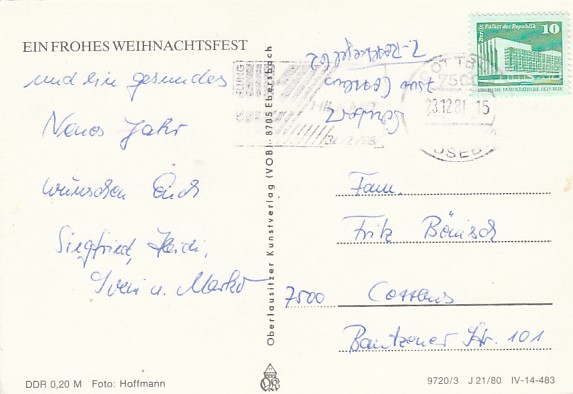 EIN FROHES WEIHNACHTSFEST
und ein gesundes
Neues Jahr
wünschen Euch
Siegfried, Heidi,
Sven u. Marko
DDR 0,20 M Foto: Hoffmann
Oberlausitzer Kunstverlag (VOB) · 8705 Ebersbach
Palast der Republik
10
DEUTSCHE DEMOKRATISCHE REPUBLIK
COTTBUS
7500
23.12.81 15
Fam.
Fritz Bönisch
7500 Cottbus
Bautzener Str. 101
9720/3 J 21/80 IV-14-483